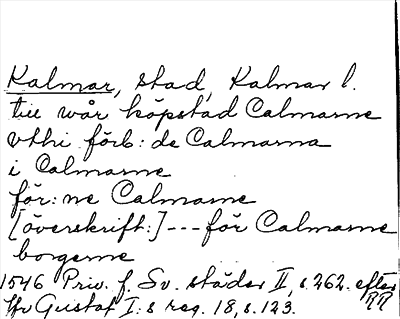 Kalmar, stad, Kalmar l.
till wår köpstad Calmarne
vthi förb: de Calmarna
i Calmarne
för: ne Calmarne
[överskrift:] --- för Calmarne
borgerne
1546 Priv. f. Sv. städer II, s. 262. efter
Gustaf I:s reg. 18, s. 123. RR